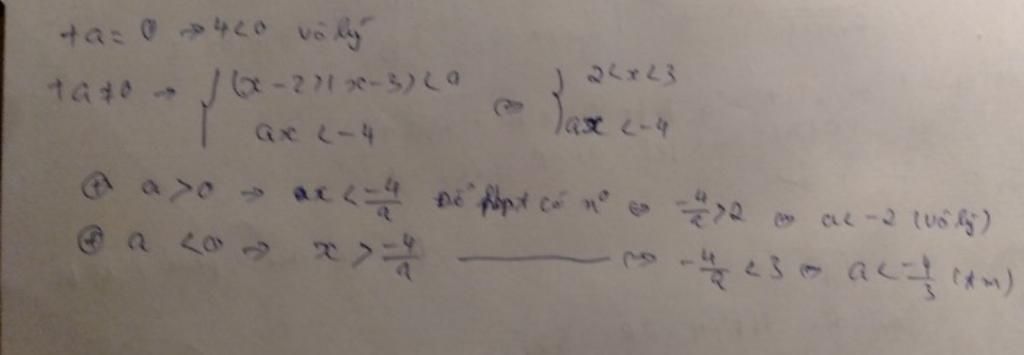 +a = 0 → 4<0 vô lý
+a≠0 → { (x-2)(x-3)<0 ⇔ { 2<x<3
ax < -4 ax < -4
⊕ a>0 → ax < -4/a Để hbpt có n⁰ ⇔ -4/a > 2 ⇔ a< -2 (vô lý)
⊕ a <0 → x > -4/a ——— ⇔ -4/a < 3 ⇔ a< -4/3 (t/m)